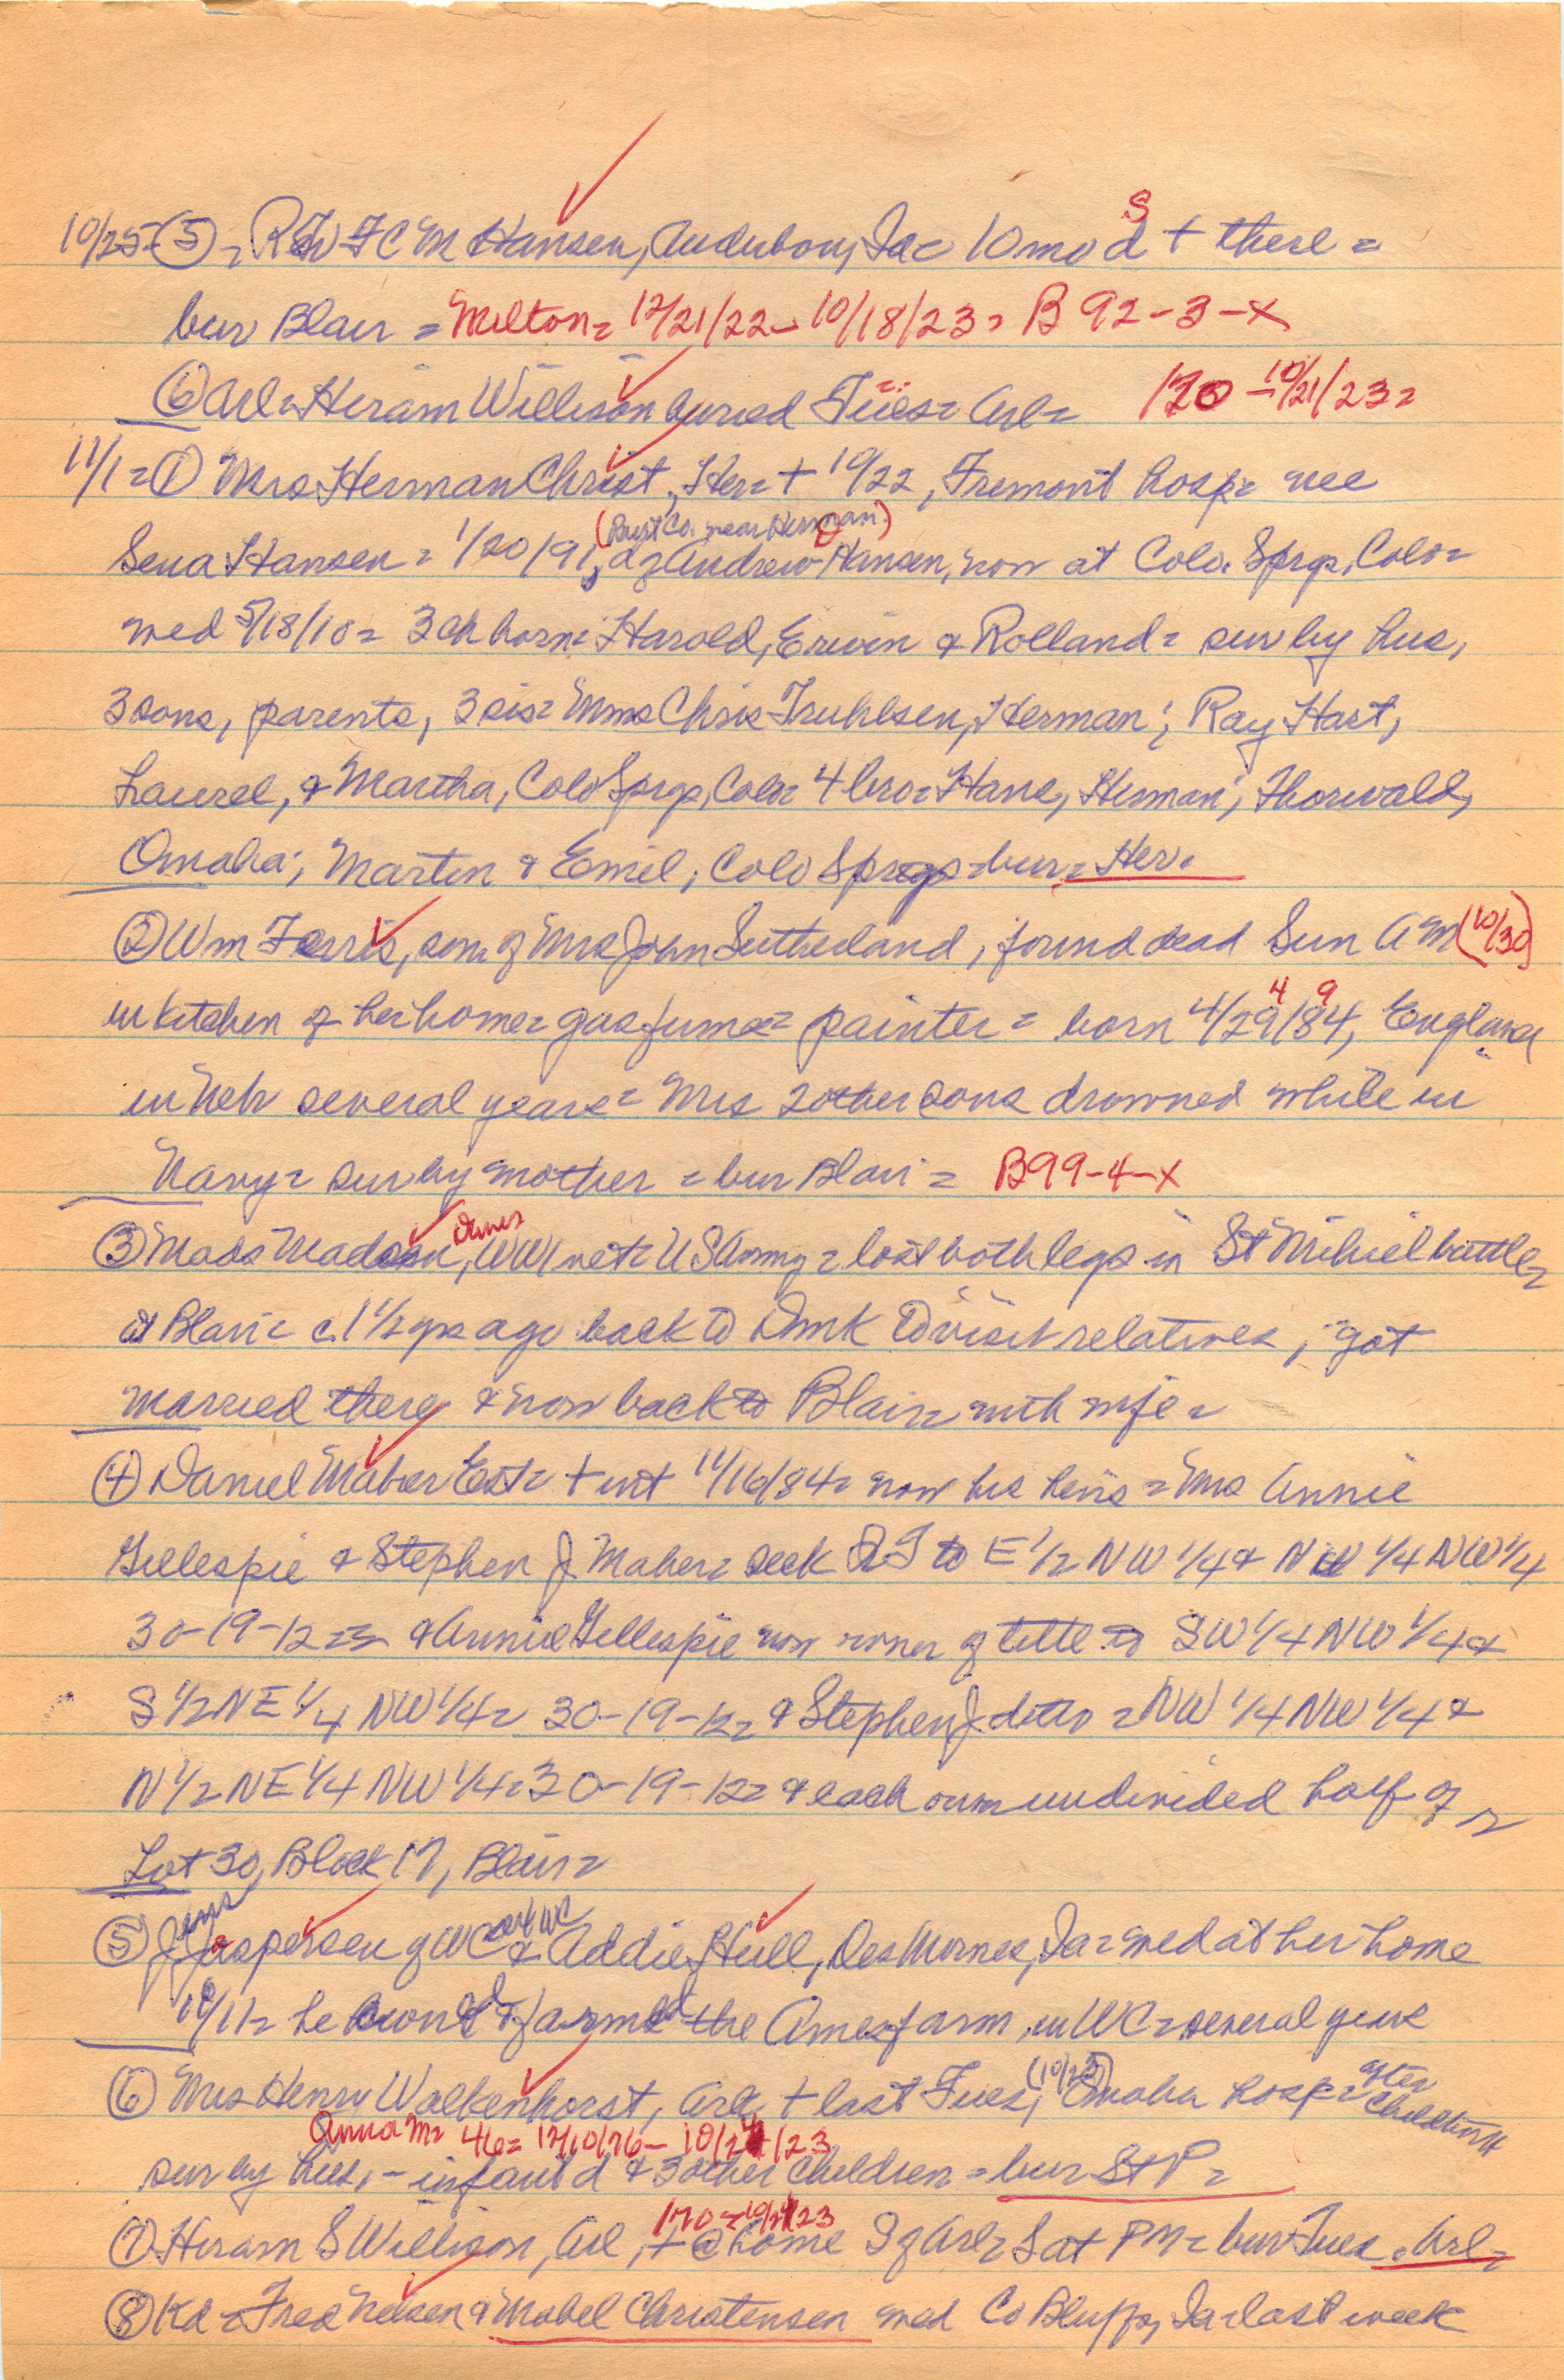 10/25=(5)= Rev F C M Hansen, Audubon, Ia= 10 mo d S + there=
bur Blair = Milton= 12/21/22 - 10/18/23= B 92-3-X
(6) Arl= Hiram Willison buried Tues= Arl= 170 - 10/21/23=
11/1=(1) Mrs Herman Christ, Her= + 10/22, Fremont hosp= nee
(Burt Co. near Herman)
Sena Hansen= 1/20/91, d of Andrew Hansen, now at Colo. Sprgs, Colo=
wed 5/18/10= 3 ch born= Harold, Erwin & Rolland= sur by hus,
3 sons, parents, 3 sis= Mmes Chris Truhlsen, Herman; Ray Hart,
Laurel, & Martha, Colo Sprgs, Colo= 4 bro= Hans, Herman; Thorwald,
Omaha; Martin & Emil, Colo Sprgs= bur= Her.
(2) Wm Ferris, son of Mrs John Sutherland, found dead Sun AM (10/30)
4 9
in kitchen of her home= gas fumes= painter= born 4/29/84, England
in Neb several years= Mrs 2 other sons drowned while in
Navy= sur by mother = bur Blair = B99-4-X
(3) Mads Madsen, WWI vet= US Army= lost both legs in St Mihiel battle=
at Blair= c. 1 1/2 yrs ago back to Dmk to visit relatives, got
married there & now back to Blair= with wife=
(4) Daniel Maher Est= + int 11/16/84= now his heirs = Mrs Annie
Gillespie & Stephen J. Maher= seek QT to E 1/2 NW 1/4 & NW 1/4 NW 1/4
30-19-12== & Annie Gillespie now owner of title to SW 1/4 NW 1/4 &
S 1/2 NE 1/4 NW 1/4= 30-19-12= & Stephen J. ditto = NW 1/4 NW 1/4 &
N 1/2 NE 1/4 NW 1/4= 30-19-12= & each own undivided half of =
Lot 30, Block 17, Blair=
Jens
(5) J Jaspersen of WC & Addie Hull, Des Moines, Ia= wed at her home
10/11= he owned & farmed the Ames farm, in WC= several years
(6) Mrs Henry Walkenhorst, Arl, + last Tues, (10/23) Omaha hosp= after childbirth
Anna M= 46= 12/10/76 - 10/24/23
sur by hus, - infant d & 3 other children = bur St P=
170=10/21/23
(7) Hiram S Willison, Arl, + @ home S of Arl= Sat PM= bur Tues. Arl=
(8) Kd= Fred Nelsen & Mabel Christensen wed Co Bluffs, Ia= last week